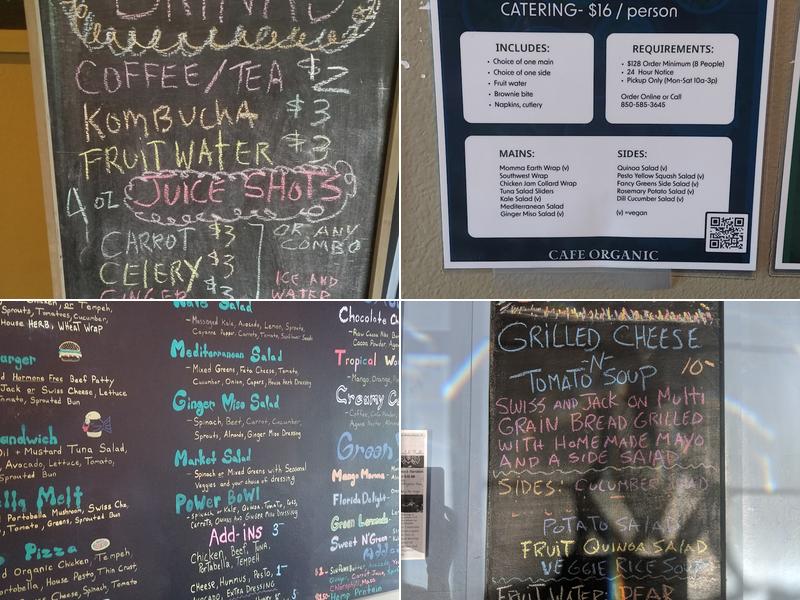 DRINKS
COFFEE/TEA $2
KOMBUCHA $3
FRUIT WATER $3
4 OZ JUICE SHOTS
CARROT $3
CELERY $3
GINGER $3
OR ANY
COMBO
ICE AND
WATER
CATERING- $16 / person
INCLUDES:
• Choice of one main
• Choice of one side
• Fruit water
• Brownie bite
• Napkins, cutlery
REQUIREMENTS:
• $128 Order Minimum (8 People)
• 24 Hour Notice
• Pickup Only (Mon-Sat 10a-3p)
Order Online or Call
850-585-3645
MAINS:
Momma Earth Wrap (v)
Southwest Wrap
Chicken Jam Collard Wrap
Tuna Salad Sliders
Kale Salad (v)
Mediterranean Salad
Ginger Miso Salad (v)
SIDES:
Quinoa Salad (v)
Pesto Yellow Squash Salad (v)
Fancy Greens Side Salad (v)
Rosemary Potato Salad (v)
Dill Cucumber Salad (v)
(v) =vegan
CAFE ORGANIC
Chicken, or Tempeh,
Sprouts, Tomatoes, Cucumber,
House HERB, WHEAT WRAP
Hormone Free Beef Patty
Jack or Swiss Cheese, Lettuce
Tomato, Sprouted Bun
Oil + Mustard Tuna Salad,
Avocado, Lettuce, Tomato,
Sprouted Bun
Melt
Portabella Mushroom, Swiss
Tomato, Greens, Sprouted Bun
Pizza
Organic Chicken, Tempeh,
Portabella, House Pesto, Thin Crust,
Cheese, Spinach, Tomato
Kale Salad
- Massaged Kale, Avocado, Lemon, Sprouts,
Cayenne Pepper, Carrots, Tomato, Sunflower Seeds
Mediterranean Salad
- Mixed Greens, Feta Cheese, Tomato,
Cucumber, Onion, Capers, House Herb Dressing
Ginger Miso Salad
- Spinach, Beet, Carrot, Cucumber,
Sprouts, Almonds, Ginger Miso Dressing
Market Salad
- Spinach or Mixed Greens with Seasonal
Veggies and your choice of dressing
Power Bowl
- Spinach or Kale, Quinoa, Tomato,
Carrots, Onions and Ginger Miso Dressing
Add-ins 3
Chicken, Beef, Tuna,
Portabella, Tempeh
Cheese, Hummus, Pesto, 1
Avocado, Extra Dressing
Chocolate
- Raw Cacao Nibs,
Cocoa Powder,
Tropical
- Mango, Orange,
Creamy
- Coffee,
Green
Mango Momma -
Florida Delight -
Green Lemonade -
Sweet N'Green -
Hemp Protein
GRILLED CHEESE
-N-
TOMATO SOUP 10-
SWISS AND JACK ON MULTI
GRAIN BREAD GRILLED
WITH HOMEMADE MAYO
AND A SIDE SALAD
SIDES: CUCUMBER SALAD
POTATO SALAD
FRUIT QUINOA SALAD
VEGGIE RICE SOUP
FRUIT WATER: PEAR